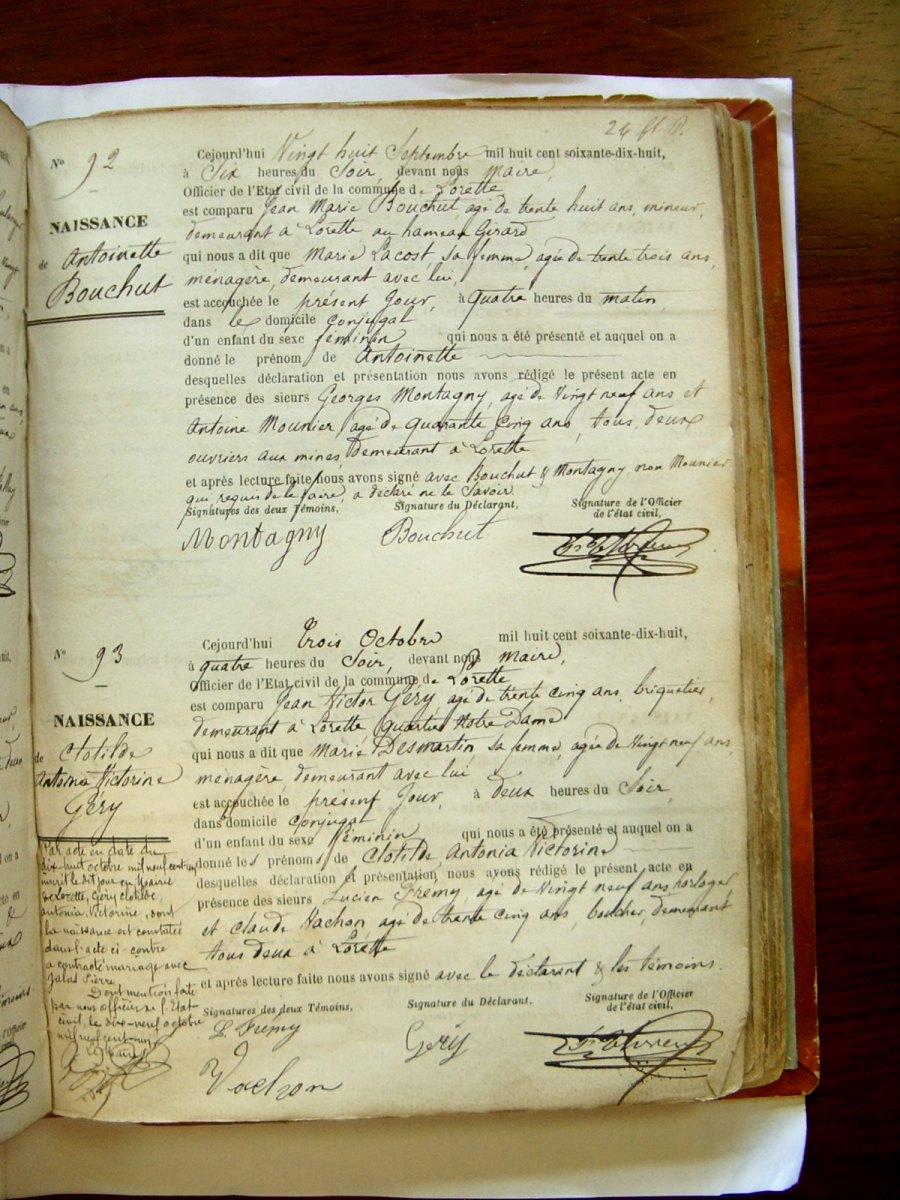 24
N° 92
NAISSANCE
de Antoinette
Bouchut
Cejourd'hui Vingt huit Septembre mil huit cent soixante-dix-huit,
à Six heures du Soir, devant nous Maire,
Officier de l'Etat civil de la commune de Lorette
est comparu Jean Marie Bouchut, agé de trente huit ans, mineur,
demeurant à Lorette au hameau Girard
qui nous a dit que Marie Lacost, sa femme, agée de trente trois ans,
ménagère, demeurant avec lui,
est accouchée le présent Jour, à quatre heures du matin,
dans le domicile conjugal
d'un enfant du sexe féminin qui nous a été présenté et auquel on a
donné le prénom de Antoinette
desquelles déclaration et présentation nous avons rédigé le présent acte en
présence des sieurs Georges Montagny, agé de Vingt neuf ans et
Antoine Mounier, agé de quarante cinq ans, tous deux
ouvriers aux mines, demeurant à Lorette
et après lecture faite nous avons signé avec Bouchut & Montagny, non Mounier
qui requis de le faire, a déclaré ne le Savoir.
Signatures des deux Témoins, Signature du Déclarant, Signature de l'Officier
de l'état civil,
Montagny Bouchut
N° 93
NAISSANCE
de Clotilde
Antonia Victorine
Géry
Cejourd'hui trois Octobre mil huit cent soixante-dix-huit,
à quatre heures du Soir, devant nous Maire,
Officier de l'Etat civil de la commune de Lorette
est comparu Jean Victor Géry, agé de trente cinq ans, briquetier,
demeurant à Lorette, quartier Notre Dame
qui nous a dit que Marie Desmartin sa femme, agée de Vingt neuf ans,
ménagère, demeurant avec lui
est accouchée le présent Jour, à deux heures du Soir,
dans domicile conjugal
d'un enfant du sexe féminin qui nous a été présenté et auquel on a
donné les prénoms de Clotilde, Antonia Victorine
desquelles déclaration et présentation nous avons rédigé le présent acte en
présence des sieurs Lucien Fremy, agé de Vingt neuf ans, horloger
et Claude Vachon, agé de trente cinq ans, boucher, demeurant
tous deux à Lorette
et après lecture faite nous avons signé avec le déclarant & les témoins.
Signatures des deux Témoins, Signature du Déclarant, Signature de l'Officier
de l'état civil,
L. Fremy Géry
Vachon
Par acte en date du
dix-huit octobre mil neuf cent un
inscrit le dit jour en Mairie
de Lorette, Géry Clotilde,
Antonia, Victorine, dont
la naissance est constatée
dans l'acte ci-contre
a contracté mariage avec
Jalas Pierre
Dont mention faite
par nous officier de l'Etat
civil, le dix-neuf octobre
mil neuf cent un